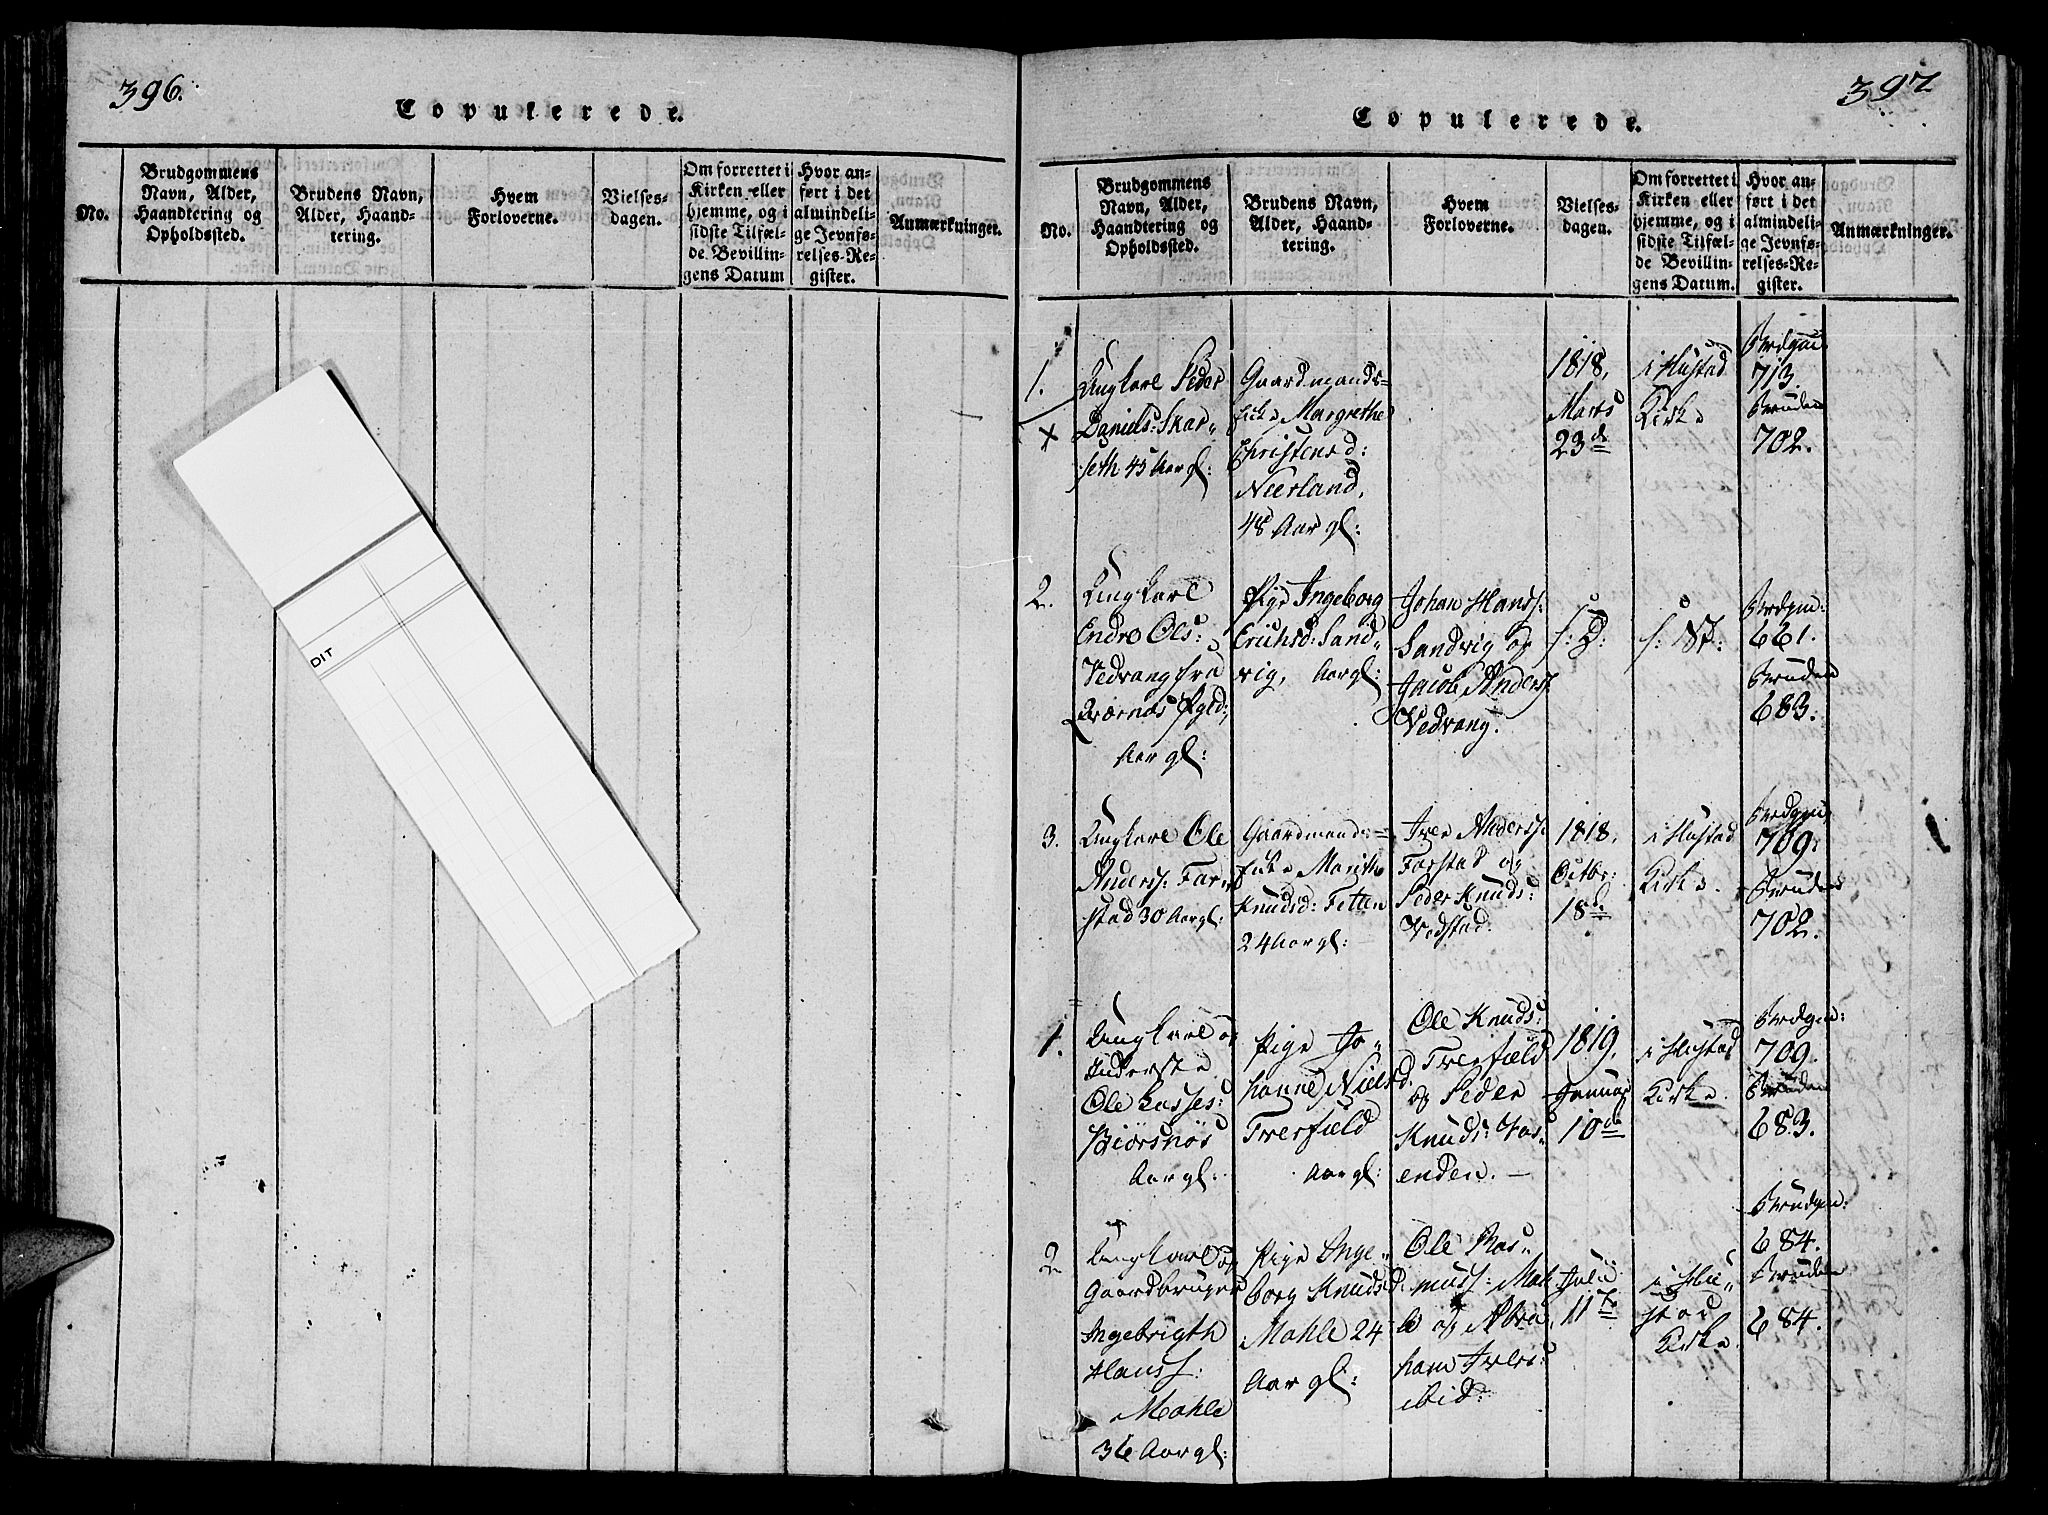 396.
Copulerede.
No.
Brudgommens
Navn, Alder,
Haandtering og
Opholdssted.
Brudens Navn,
Alder, Haand-
tering.
Hvem
Forloverne.
Vielses-
dagen.
Om forrettet i
Kirken eller
hjemme, og i
sidste Tilfæl-
de Bevillin-
gens Datum
Hvor an-
ført i det
almindeli-
ge Jevnfø-
relses-Re-
gister.
Anmærkninger.
DIT
397
Copulerede.
No.
Brudgommens
Navn, Alder,
Haandtering og
Opholdssted.
Brudens Navn,
Alder, Haand-
tering.
Hvem
Forloverne.
Vielses-
dagen.
Om forrettet i
Kirken eller
hjemme, og i
sidste Tilfæl-
de Bevillin-
gens Datum.
Hvor an-
ført i det
almindeli-
ge Jevnfø-
relses-Re-
gister.
Anmærkninger.
1.
Ungkarl Peder
Daniels: Skar„
seth 45 Aar gl:
Gaardmands=
Enke Margrethe
Christensd:
Neerland,
48 Aar gl:
1818,
Marts
23de
i Hustad
Kirke
Brudgom
713.
Bruden
702.
2.
Ungkarl
Endre Ols:
Vedvang fra
Qvernæs Pgld:,
Aar gl:
Pige Ingeborg
Erichsd: Sand„
vig, Aar gl:
Johan Hanss:
Sandvig og
Jacob Anderss:
Vedvang.
s: D:
s: St:
Brdgm:
661.
Bruden
683.
3.
Ungkarl Ole
Anderss: Far„
stad 30 Aar gl:
Gaardmands=
Enke Marithe
Knudsd: Fetten
24 Aar gl:
Iver Anderss:
Farstad og
Peder Knuds:
Vedstad.
1818.
Octbr:
18de
i Hustad
Kirke.
Brdgm:
709.
Bruden
702.
1.
Ungkarl og
Inderste
Ole Lasses:
Biørsnøs
Aar gl:
Pige Jo„
hanne Nielsd.
Tverfield
Aar gl:
Ole Knuds:
Tverfield
og Peder
Knuds: Aas„
enden. —
1819.
Januar
10de
i Hustad
Kirke.
Brdgm:
709.
Bruden
683.
2
Ungkarl og
Gaardbruger
Ingebrigth
Hanss:
Mahle
36 Aar gl:
Pige Inge„
borg Knudsd:
Mahle 24
Aar gl:
Ole Ras„
muss: Mah
le og Abra„
ham Ivers:
ibid:
Julii
11te
i Hu„
stad
Kirke.
Brudgm:
684.
Bruden
684.